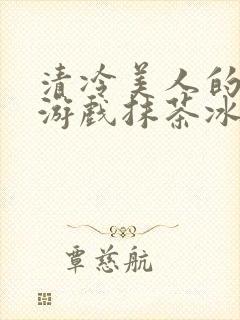 清冷美人的
游戏抹茶冰
覃慈航